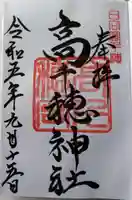 奉拝
高千穂神社
令和五年九月十五日